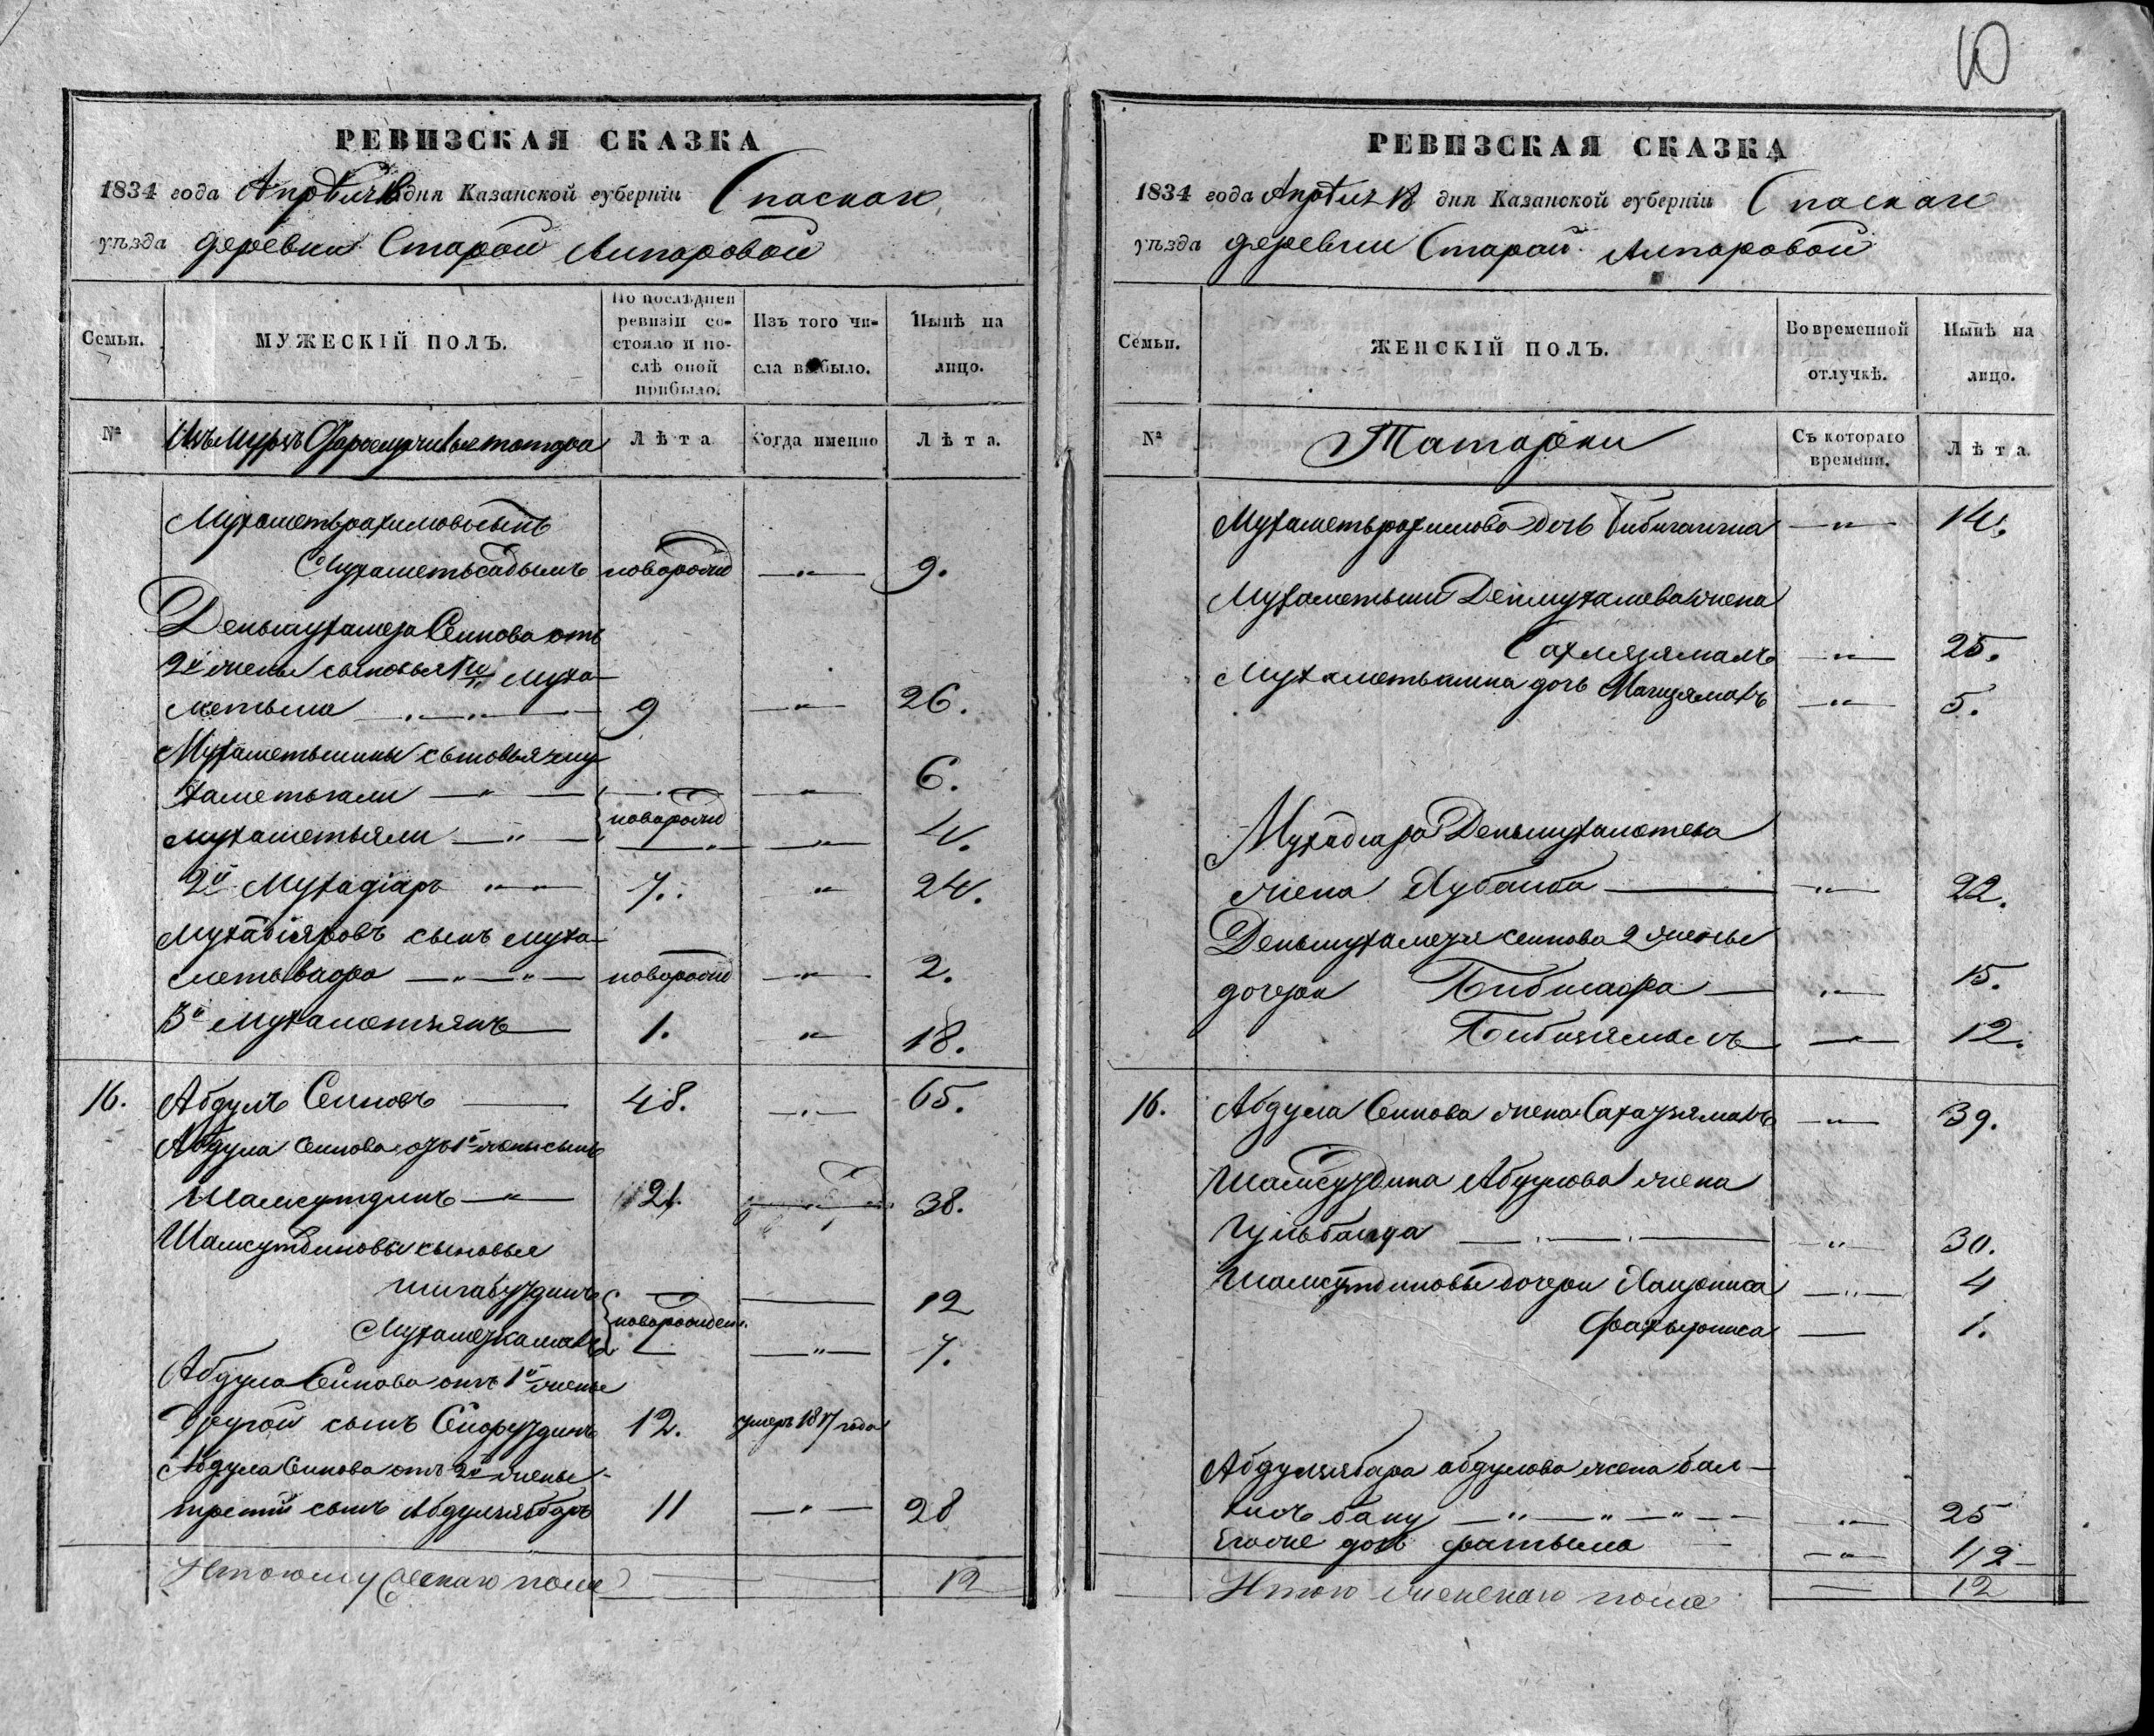 10
РЕВИЗСКАЯ СКАЗКА
1834 года Апреля 18 дня Казанской губерніи Спаскаго
уѣзда деревни Старой Алпаровой
Семьи.
МУЖЕСКІЙ ПОЛЪ.
По послѣдней ревизіи состояло и послѣ оной прибыло.
Изъ того числа выбыло.
Нынѣ на лицо.
№
Изъ мурзъ татара
Лѣта
Когда именно
Лѣта.
Мухаметьрахимовъ сынъ
Мухаметьсадыкъ новорожд — " — 9.
Деньмухамета Сеинова отъ
2й жены сыновья 1й Муха-
метьша — " — 9 — " — 26.
Мухаметьшины сыновья му-
хаметьгали — " — — " — 6.
новорожд
мухаметьяли — " — — " — 4.
2й Мухадіаръ " 7. " 24.
Мухадіяровъ сынъ муха-
метьвафа — " — " — новорожд — " — 2.
3й Мухаметзянъ — 1. " 18.
16. Абдулъ Сеиновъ — 48. — " — 65.
Абдула Сеинова отъ 1й жены сынъ
Шамсутдинъ — " — 21. 38.
Шамсутдиновы сыновья
Шигабутдинъ — 12
новорожден.
Мухаметкамалъ — " — 7.
Абдула Сеинова отъ 1й жены
Другой сынъ 12. умеръ 18 года
Абдула Сеинова отъ 2й жены
третій сынъ Абдулзябаръ 11 — " — 28
Итого мужескаго пола 12
РЕВИЗСКАЯ СКАЗКА
1834 года Апреля 18 дня Казанской губерніи Спаскаго
уѣзда деревни Старой Алпаровой
Семьи.
ЖЕНСКІЙ ПОЛЪ.
Во временной отлучкѣ.
Нынѣ на лицо.
№
Татарки
Съ котораго времени.
Лѣта.
Мухаметьрахимова дочь — " — 14.
Мухаметьши Денмухаметева жена
— " — 25.
Мухаметьшина дочь — " — 5.
Мухадіара Деньмухаметева
жена Хубанба — — " — 22.
Деньмухаметя сеинова 2 жены
дочери Бибисафа — " — 15.
Бибизямалъ — " — 12.
16. Абдула Сеинова жена — " — 39.
Шамсутдина Абдулова жена
Гульбанда — " — 30.
Шамсутдиновы дочери — " — 4
Фахърниса — 1.
Абдулзябара абдулова жена бал-
хисъ бану — " — " — " — — " — 25
Егоже дочь фатыма — " — 1/2
Итого женскаго пола — 12